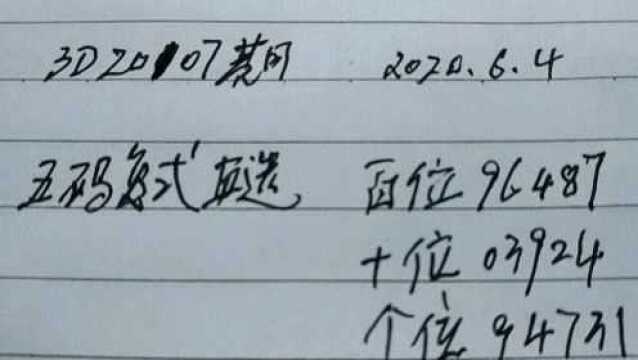 3D20107黄网 2020.6.4
五码复式直选 百位96487
十位03924
个位94731